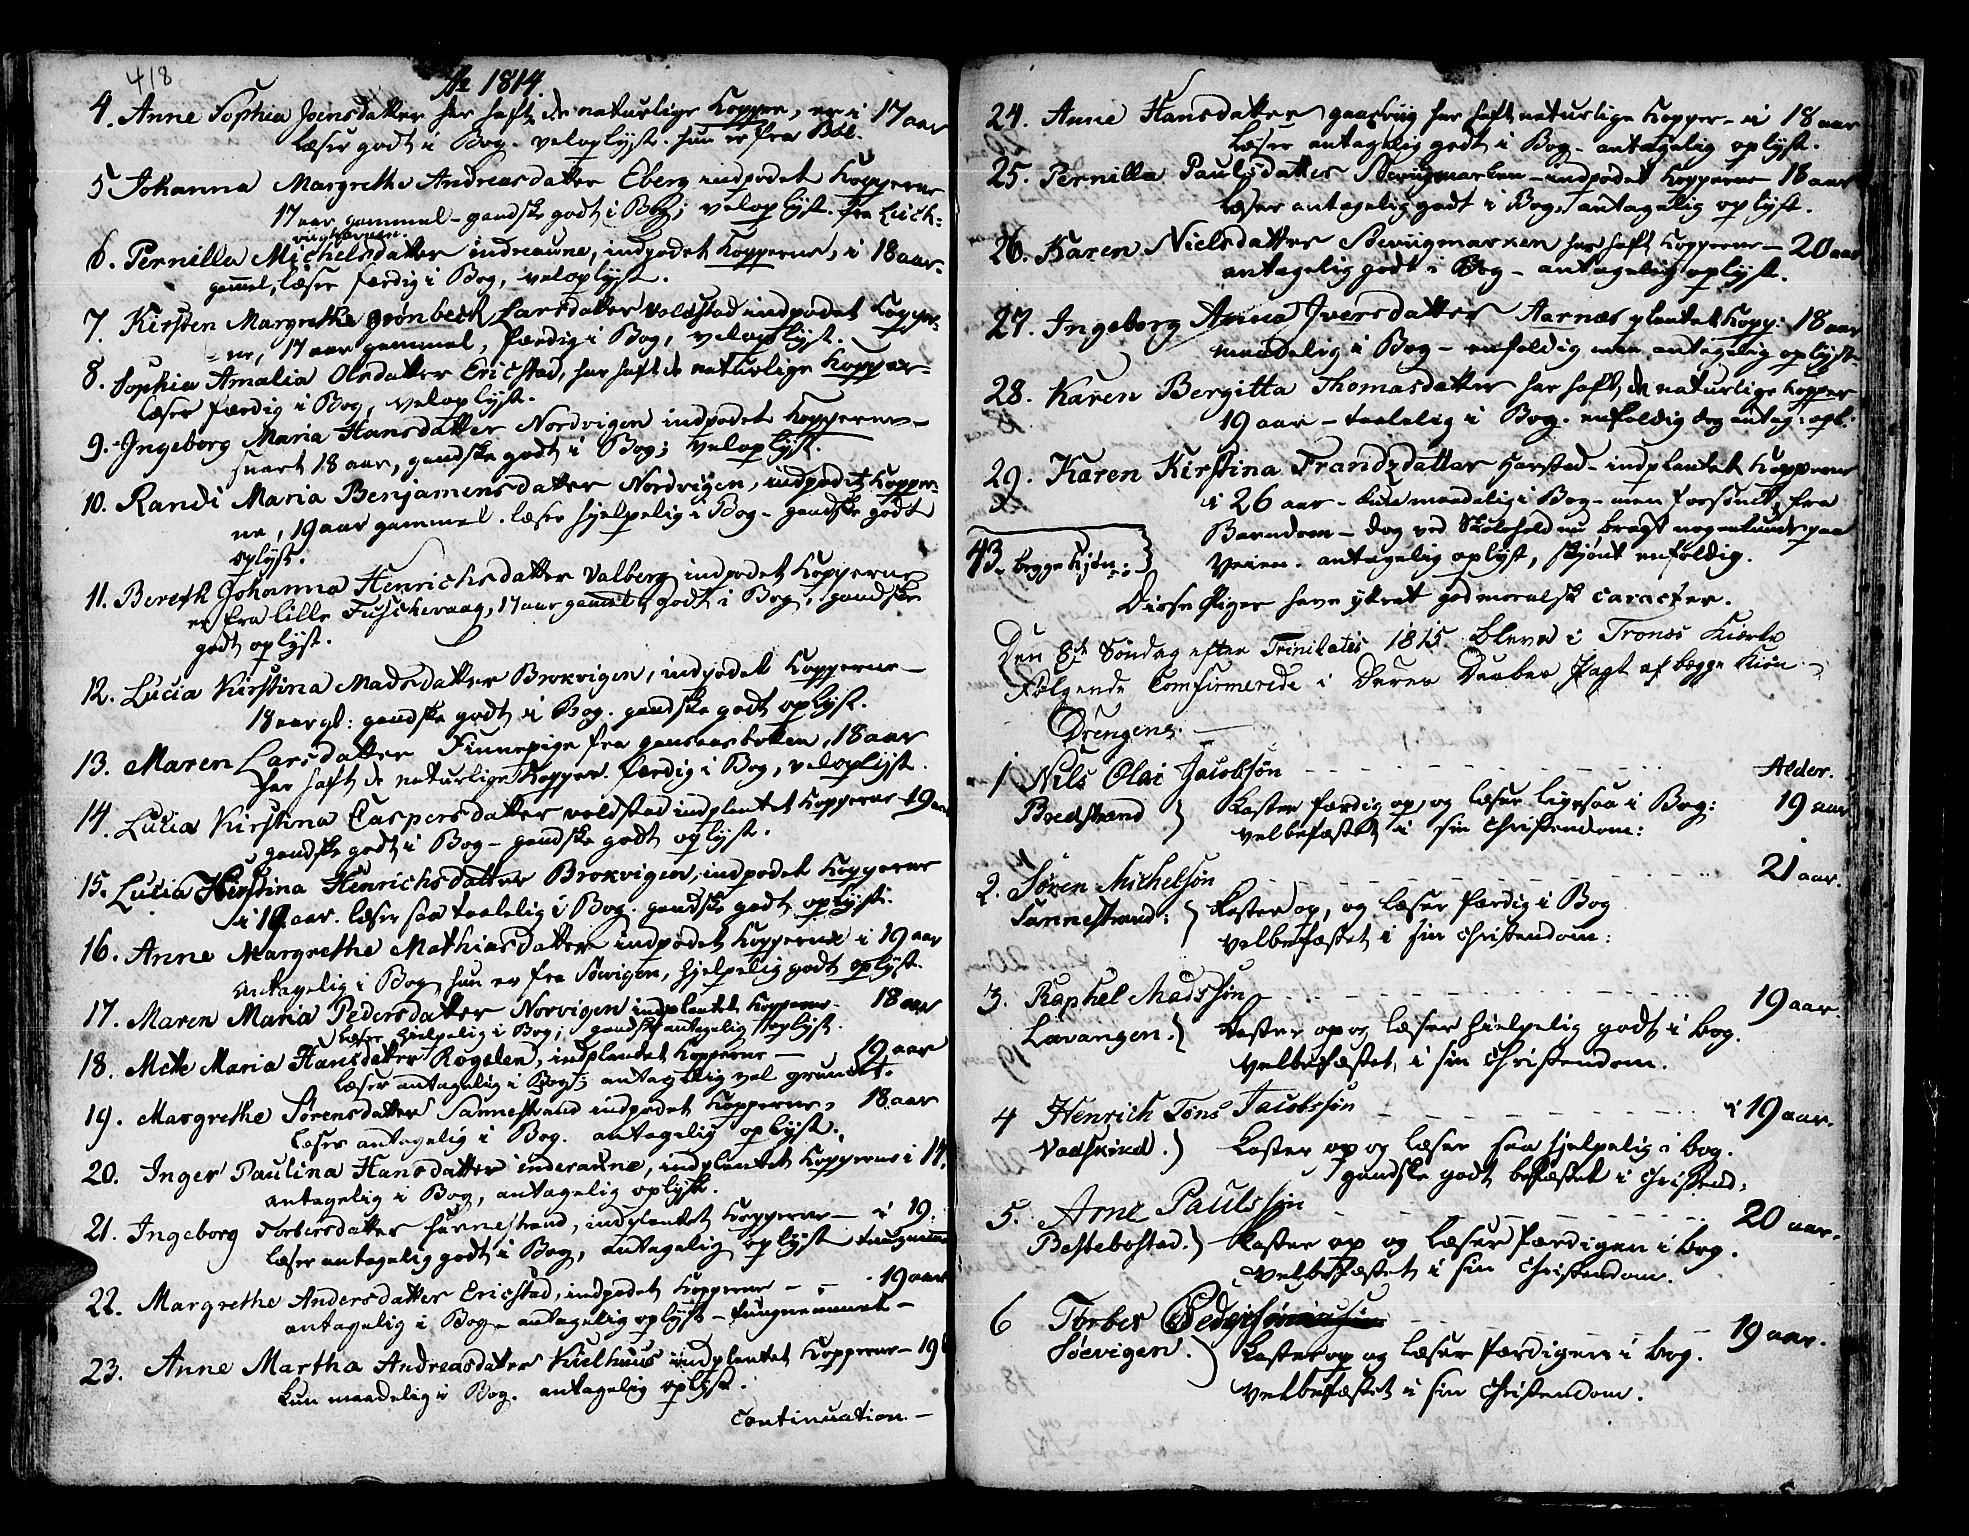 418
Ao 1814.
4. Anne Sophia Joensdatter har haft de naturlige Kopper, er i 17 aar
læser godt i Bog. veloplyst. hun er fra Bøl.
5 Johanna Margrethe Andreasdatter Eberg indpodet Kopperne
17 aar gammel - gandske godt i Bog; veloplyst. fra Lich-
6. Pernilla Michelsdatter indreaune, indpodet Kopperne, i 18 aar.
gammel, læser færdig i Bog, veloplyst.
7. Kirsten Margrethe Grønbech Larsdatter Voldstad indpodet Kopper-
ne, 17 aar gammel, færdig i Bog, veloplyst.
8. Sophia Amalia Olsdatter Ericstad, har haft de naturlige Kopper-
læser færdig i Bog, veloplyst.
9. Ingeborg Maria Hansdatter Nordvigen indpodet Kopperne-
snart 18 aar, gandske godt i Bog; veloplyst.
10. Randi Maria Benjamensdatter Nordvigen, indpodet Kopper-
ne, 19 aar gammel. læser hjelpelig i Bog - gandske godt
oplyst.
11. Bereth Johanna Henrichsdatter Valberg indpodet Kopperne
er fra lille Fuschevaag, 17 aar gammel, godt i Bog, gandske
godt oplyst.
12. Lucia Kirstina Madsdatter Brokvigen, indpodet Kopperne-
18 aar gl: gandske godt i Bog. gandske godt oplyst.
13. Maren Larsdatter Finnepige fra gausaasbotten, 18 aar
har haft de naturlige Kopper. færdig i Bog, veloplyst.
14. Lucia Kirstina Caspersdatter voldstad indplantet Kopperne - 19 aar
gandske godt i Bog - gandske godt oplyst.
15. Lucia Kirstina Henrichsdatter Brokvigen, indpodet Kopperne
i 19 aar. læser saa taalelig i Bog. gandske godt oplyst.
16. Anne Margrethe Mathiasdatter indpodet Kopperne i 19 aar
antagelig i Bog, hun er fra Søvigen, hjelpelig godt oplyst.
17. Maren Maria Pedersdatter Norvigen indplantet Kopperne. 18 aar
læser hjelpelig i Bog; gandske antagelig oplyst.
18. Mette Maria Hansdatter Rogelen, indplandet Kopperne - 19 aar
læser antagelig i Bog; antagelig vel grundet.
19. Margrethe Sørensdatter Sannestrand indpodet Kopperne, 18 aar
læser antagelig i Bog. antagelig oplyst.
20. Inger Paulina Hansdatter inderaune, indplantet Kopperne i 14,
antagelig i Bog, antagelig oplyst.
21. Ingeborg Torbersdatter sannestrand, indplantet Kopperne - i 19.
læser antagelig godt i Bog, antagelig oplyst
22. Margrethe Andersdatter Ericstad, indpodet Kopperne - - 19 aar
antagelig i Bog - antagelig oplyst - tungnemmet -
23. Anne Martha Andreasdatter Kielhuus indplantet Kopperne - 19
kun maadelig i Bog. antagelig oplyst.
Continuation. -
24. Anne Hansdatter har haft naturlige Kopper - i 18 aar
læser antagelig godt i Bog - antagelig oplyst.
25. Pernilla Paulsdatter Skrugmarken - indpodet Kopperne - 18 aar
læser antagelig godt i Bog, antagelig oplyst.
26. Karen Nielsdatter Skrugmarken har haft Kopperne - 20 aar
antagelig godt i Bog - antagelig oplyst.
27. Ingeborg Anna Iversdatter Aarnæs plantet Kopp: 18 aar
maadelig i Bog - enfoldig men antagelig oplyst.
28. Karen Bergitta Thomasdatter har haft de naturlige Kopper
19 aar - taalelig i Bog. enfoldig dog antag: opl:
29. Karen Kirstina Frandzdatter Harstad - indplantet Kopperne
i 26 aar - kun maadelig i Bog - men forsømt fra
Barndom - dog ved Skolehold nu bragt nogenlunde paa
Veien. antagelig oplyst, skjønt enfoldig.
43. begge Kjøn:
Disse Piger have ythret god moralsk Caracter.
Den 8de Søndag efter Trinitatis 1815. bleve i Tronæs Kierke
Følgende Confirmerede i Deres Daabes Pagt af begge Kiøn. -
Drengene. -
Alder.
1 Nils Olai Jacobsøn
Bredstrand } kaster færdig op, og læser ligesaa i Bog: 19 aar
velbefæstet i sin Christendom:
2. Søren Michelsøn 21 aar.
Sannestrand: } kaster op, og læser færdig i Bog
velbefæstet i sin Christendom:
3. Raphel Madssøn 19 aar.
Lavangen. } kaster op og læser hielpelig godt i bog.
velbefæstet, i sin Christendom.
4 Henrich Tøns Jacobssøn i 19 aar.
Vadskind. } kaster op og læser saa hjelpelig i bog.
gandske godt befæstet i Christend:
5. Arne Paulssøn 20 aar.
Bestebostad. } kaster op og læser færdigen i bog.
velbefæstet i sin Christendom.
6 Torber Pedersøn 19 aar.
Søevigen. } kaster op og læser færdigen i bog.
velbefæstet i sin Christendom.